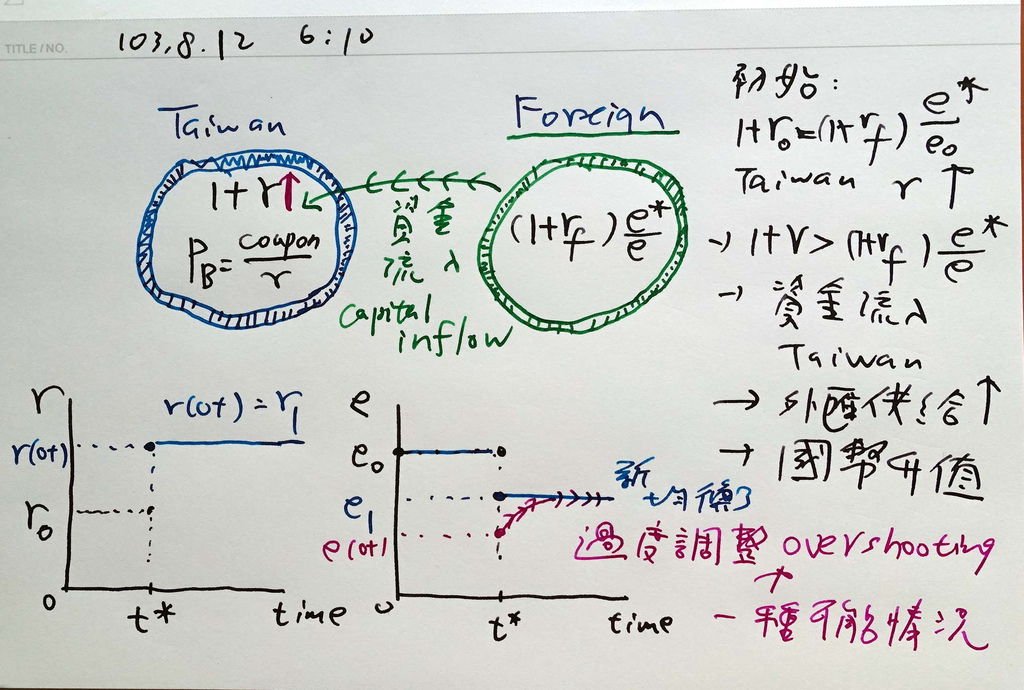 TITLE / NO.
103.8.12 6:10
Taiwan
1+r↑
P_B = coupon/r
資金
流入
capital
inflow
Foreign
(1+r_f) e*/e
初始:
1+r₀=(1+r_f) e*/e₀
Taiwan r ↑
→ 1+r > (1+r_f) e*/e
→ 資金流入
Taiwan
→ 外匯供給↑
→ 國幣升值
r
r(0+)
r₀
0
r(0+) = r₁
t*
time
e
e₀
e₁
e(0+)
0
t*
time
新
均衡
過度調整 overshooting
一種可能情況